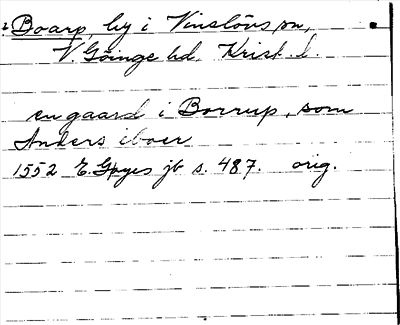 2 Boarp, by i Vinslövs sn,
V. Göinge hd. Krist. l.
en gaard i Borrup, som
Anders iboer
1552 E. Gøyes jb s. 487. orig.